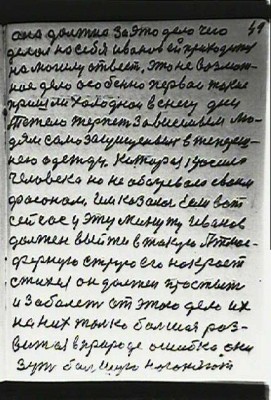 49
она должна за это дело чего
делал но себя иванов ей приходится
на могилу ответ, это не возмож-
ное дело особенно первая такие
пришли холодноа в снегу дну
тяжело терпеть зависимым лю-
дям само защищенных в
нею одежду. Которая
человека но не обогревала своим
фасоном, или казана если вот
сейчас у эту минуту Иванов
должен выйти в такую Атмос-
ферную струю его накроет
стихия он должен простыть
и заболеть от этого дела их
на них только большая раз-
вится в природе ошибка они
большую